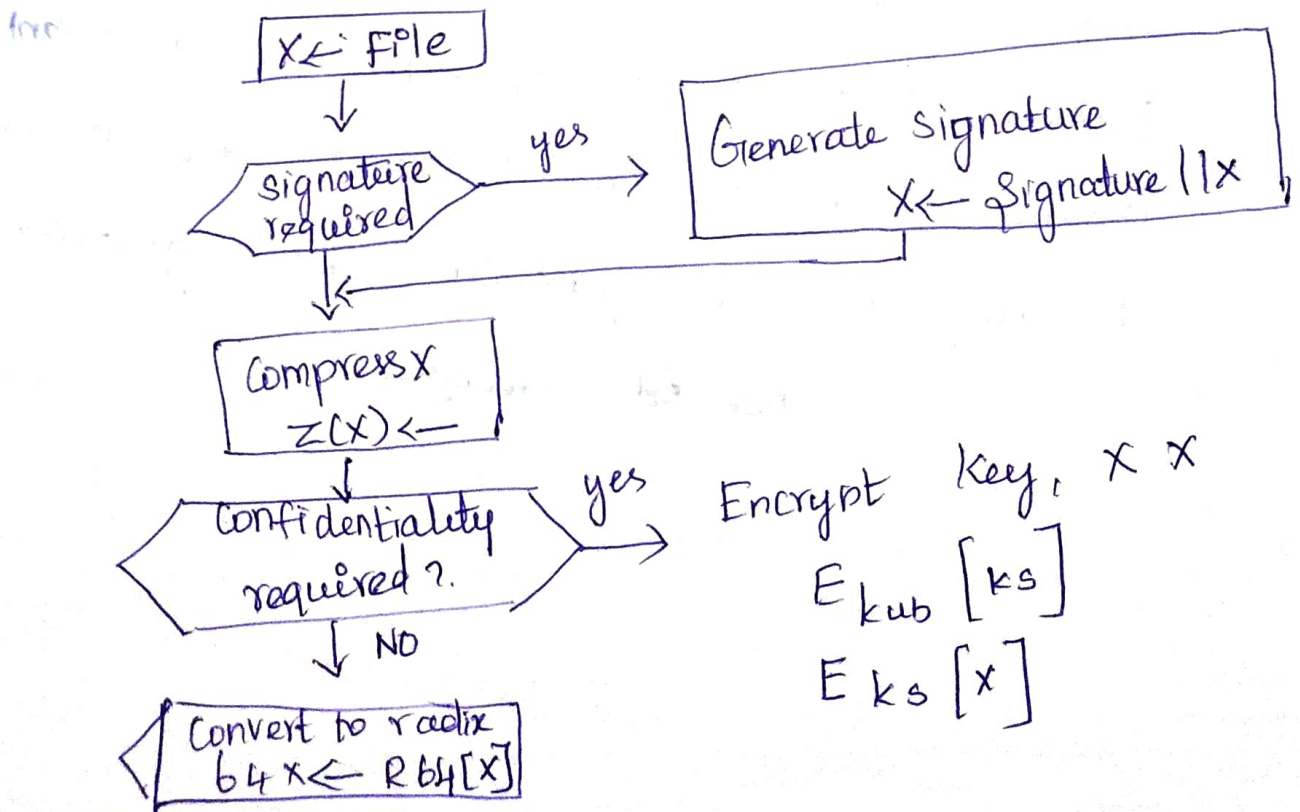 X← File
yes
signature
required
Generate signature
X← Signature ||x
Compress X
Z(X)←
confidentiality
required ?
yes
NO
Encrypt key, X X
E kub [ks]
E ks [x]
Convert to radix
64 x← R64[X]